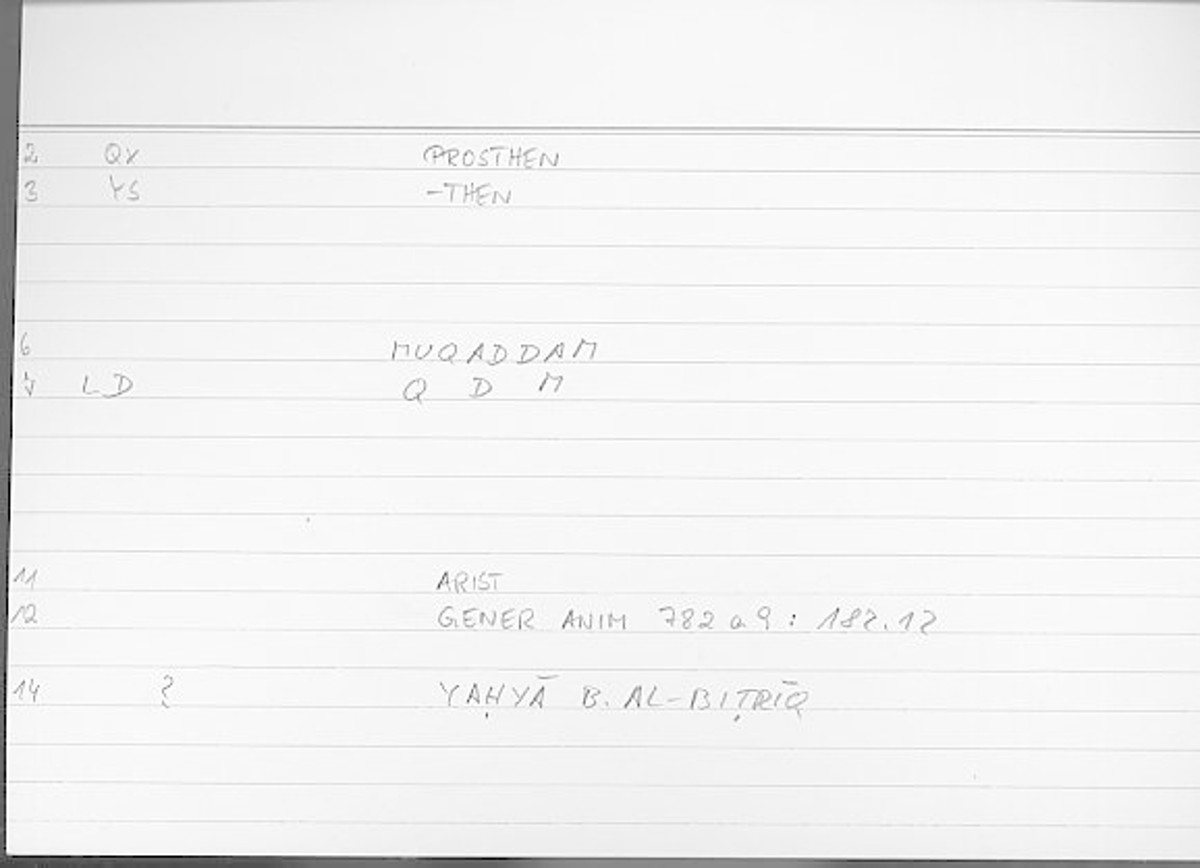 2 QX PROSTHEN
3 YS -THEN
6 MUQADDAM
7 LD Q D M
11 ARIST
12 GENER ANIM 782 a 9 : 182.12
14 ? YAḤYĀ B. AL-BIṬRĪQ